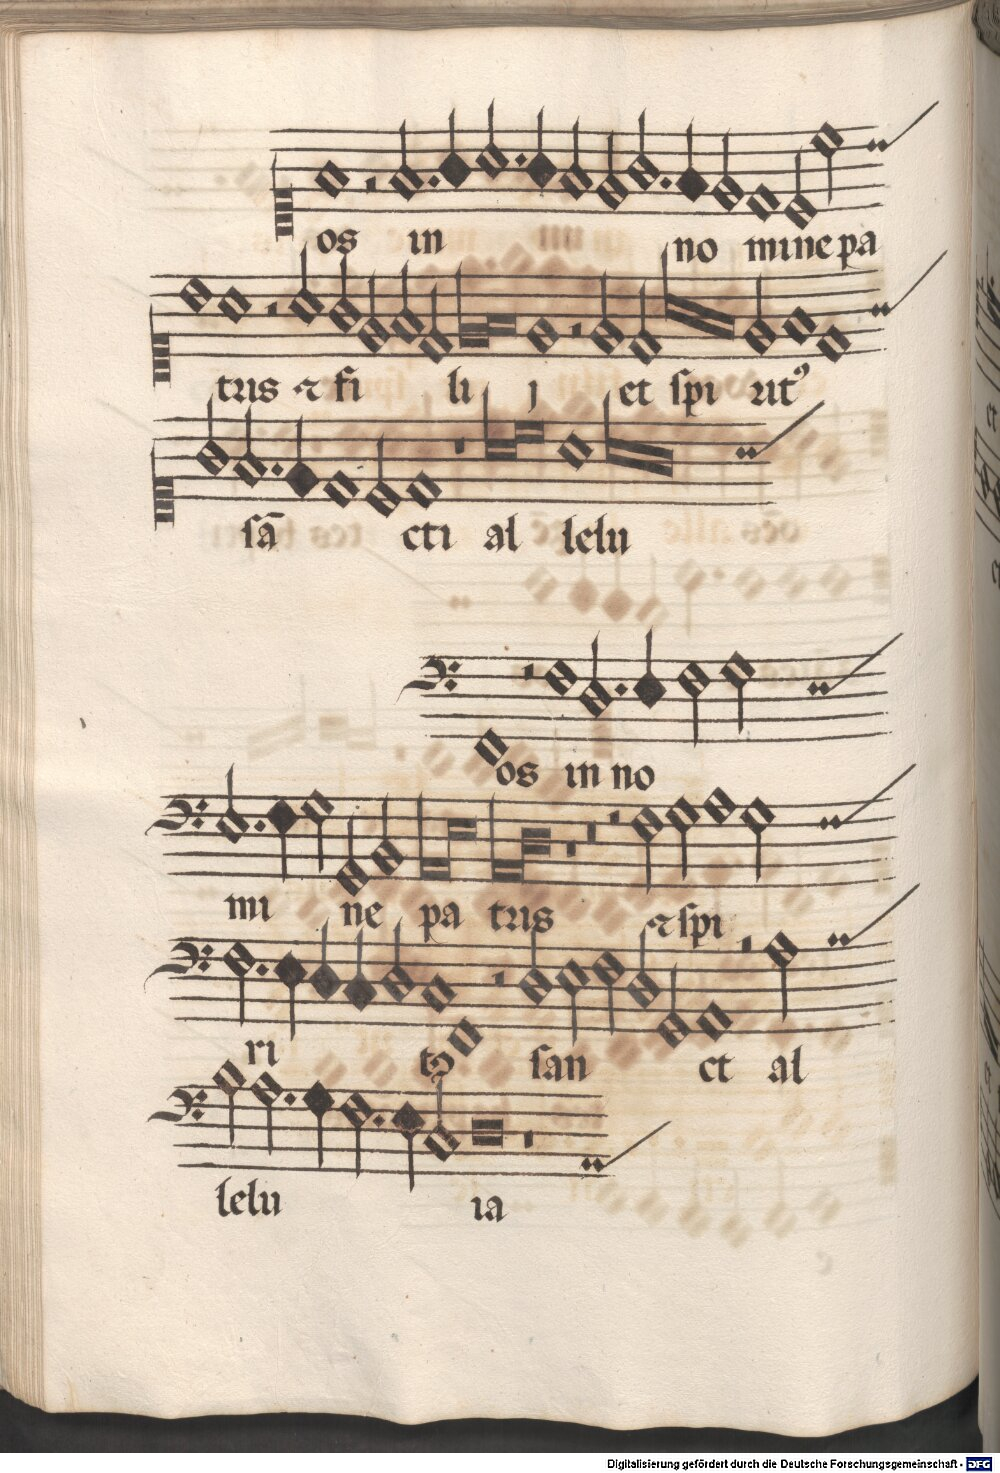 os in no mine pa
tris ⁊ fi li j et spi rit⁹
sā cti al lelu
os in no
mi ne pa tris ⁊ spi
ri san ct al
lelu ia
Digitalisierung gefördert durch die Deutsche Forschungsgemeinschaft - DFG